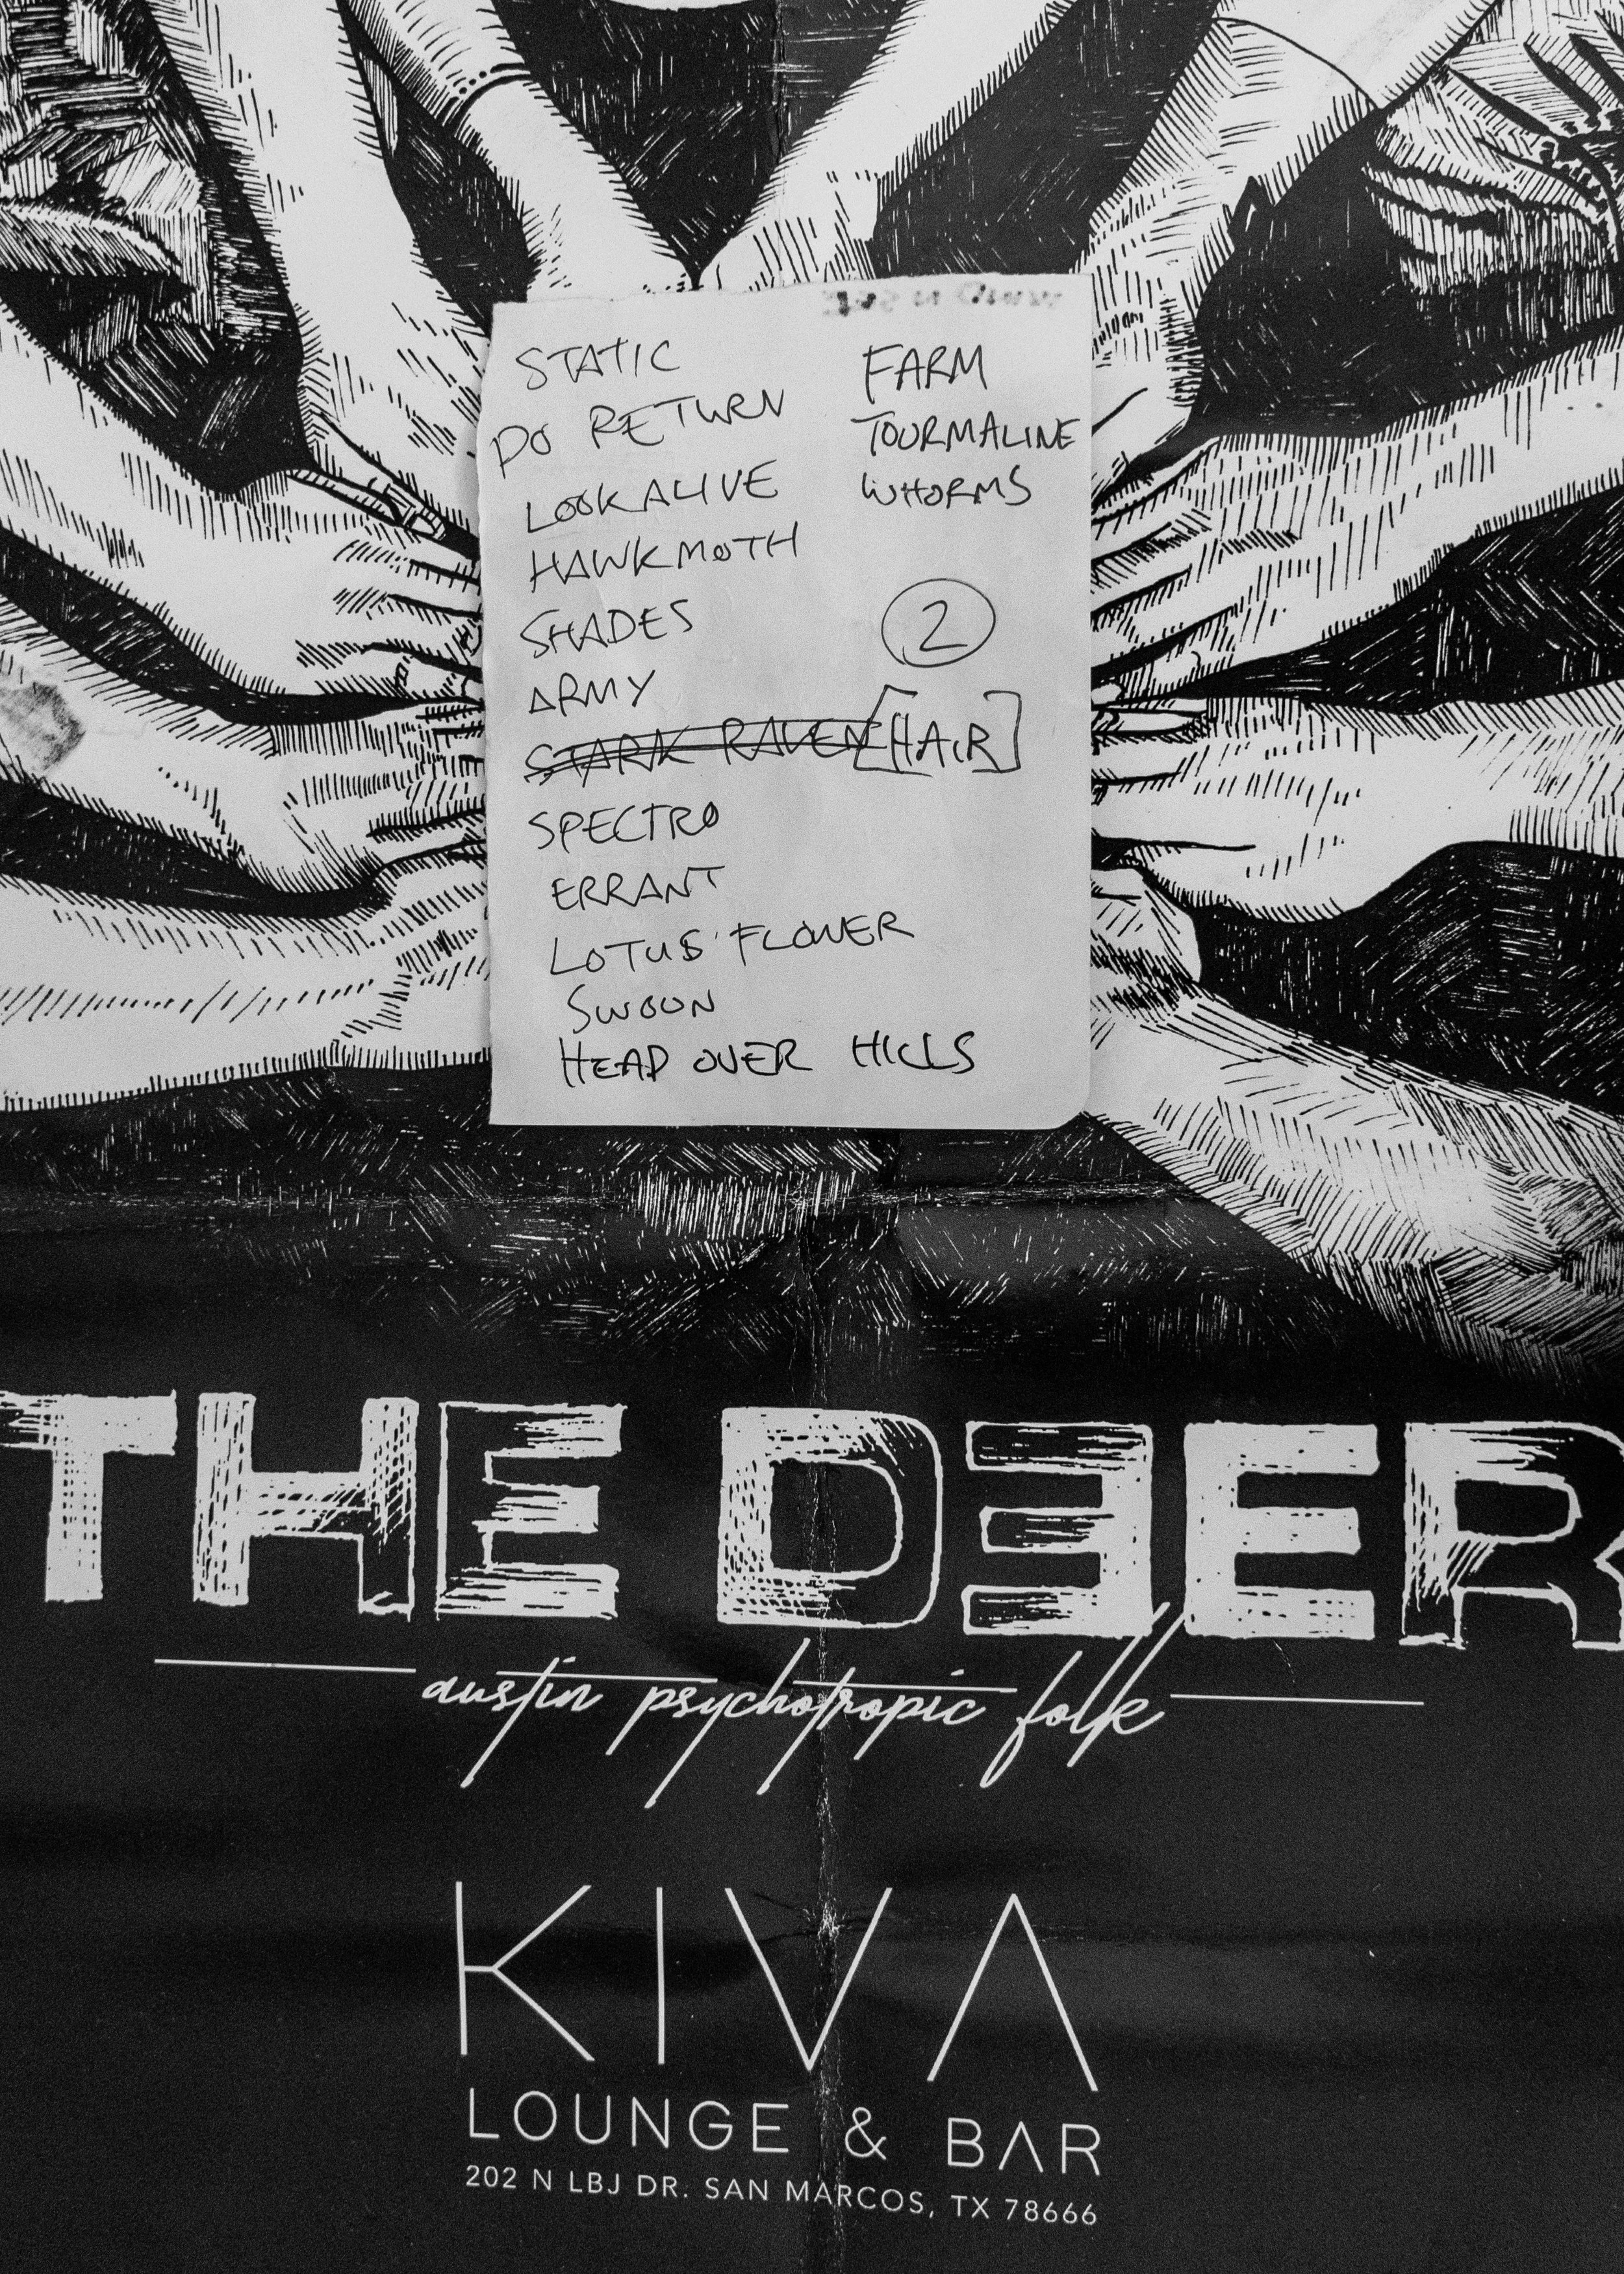 STATIC
DO RETURN
LOOKALIVE
HAWKMOTH
SHADES
ARMY
STARK RAVEN [HAIR]
SPECTRO
ERRANT
LOTUS FLOWER
SWOON
HEAD OVER HILLS
FARM
TOURMALINE
WHORMS
2
THE DEER
austin psychotropic folk
KIVA
LOUNGE & BAR
202 N LBJ DR. SAN MARCOS, TX 78666